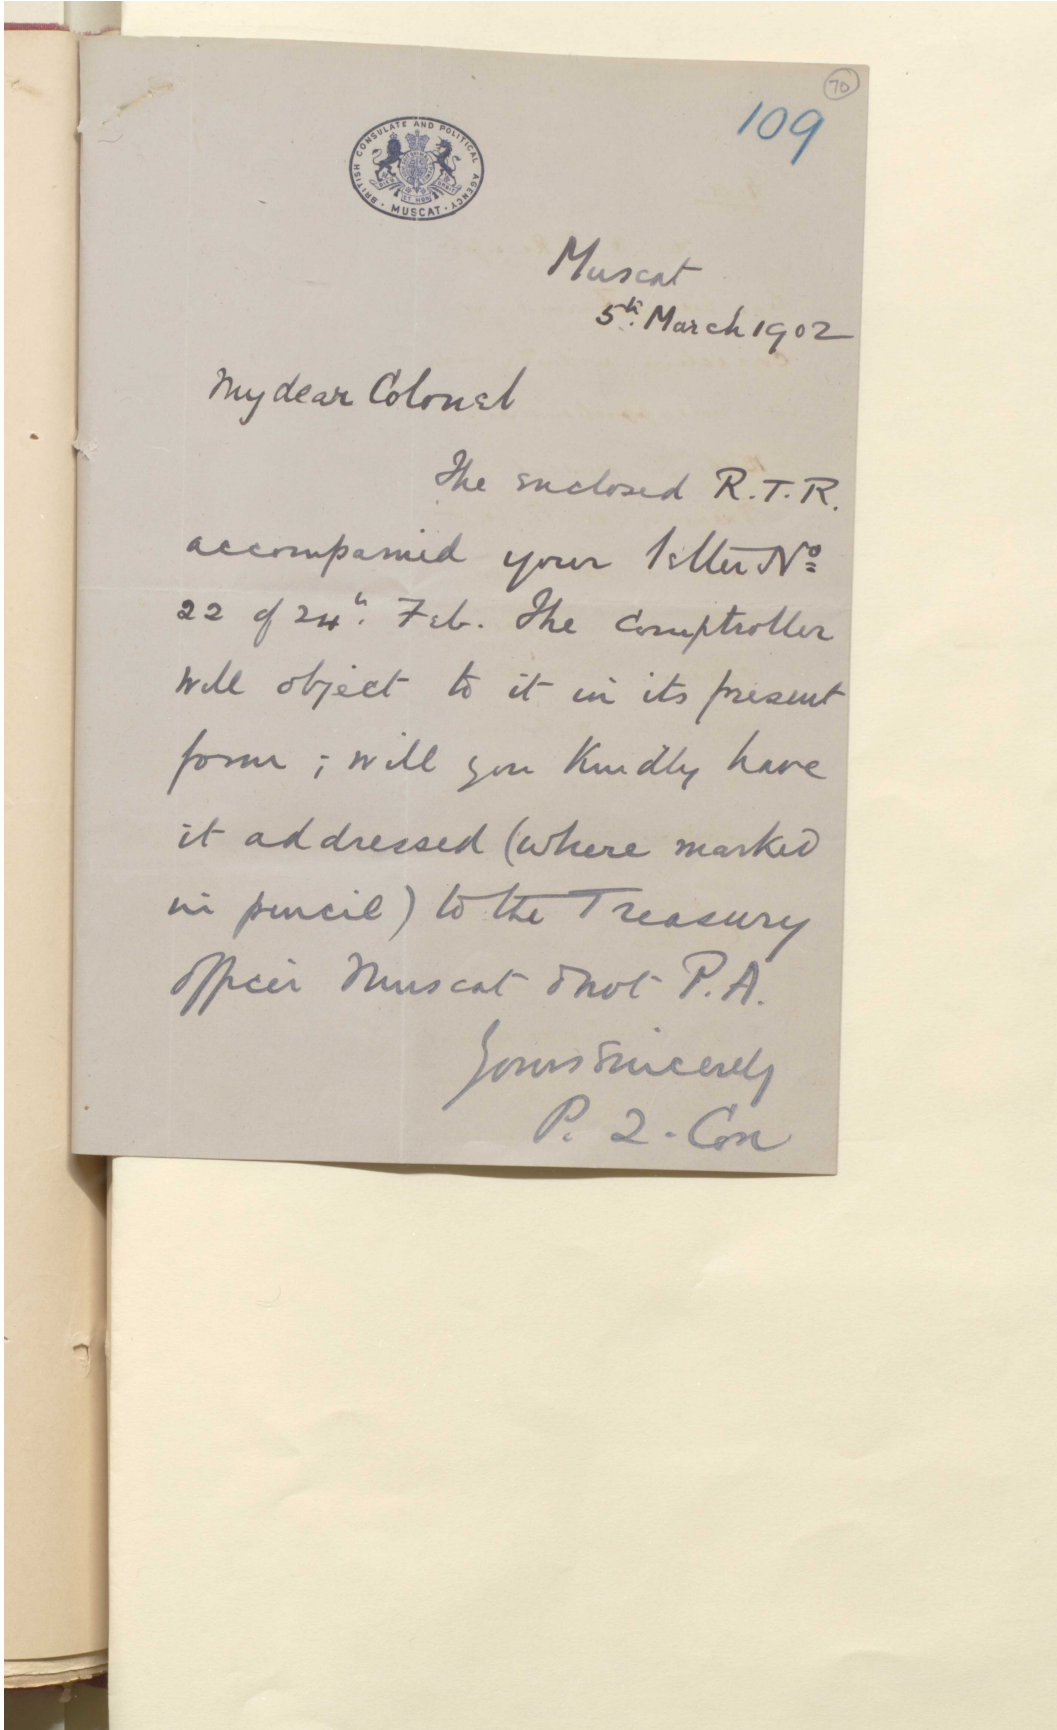 70
109
BRITISH CONSULATE AND POLITICAL AGENCY
· MUSCAT ·
Muscat
5th. March 1902
My dear Colonel
The enclosed R.T.R.
accompanied your letter No
22 of 24th. Feb. The Comptroller
will object to it in its present
form ; will you kindly have
it addressed (where marked
in pencil) to the Treasury
officer Muscat & not P.A.
Yours sincerely
P. Z. Cox